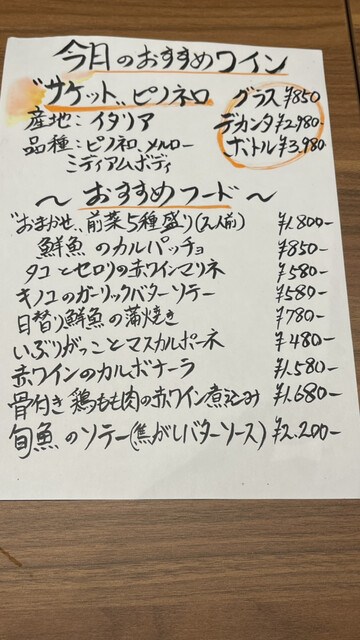 今日のおすすめワイン
"サケット" ピノネロ グラス ¥850
産地：イタリア デカンタ ¥2,980-
品種：ピノネロ、メルロー ボトル ¥3,980
ミディアムボディ
～ おすすめフード ～
"おまかせ" 前菜5種盛り(2人前) ¥1.800-
鮮魚のカルパッチョ ¥850-
タコとセロリの赤ワインマリネ ¥580-
キノコのガーリックバターソテー ¥580-
日替り鮮魚の蒲焼き ¥780-
いぶりがっことマスカルポーネ ¥480-
赤ワインのカルボナーラ ¥1.580-
骨付き鶏もも肉の赤ワイン煮込み ¥1.680-
旬魚のソテー(焦がしバターソース) ¥2.200-